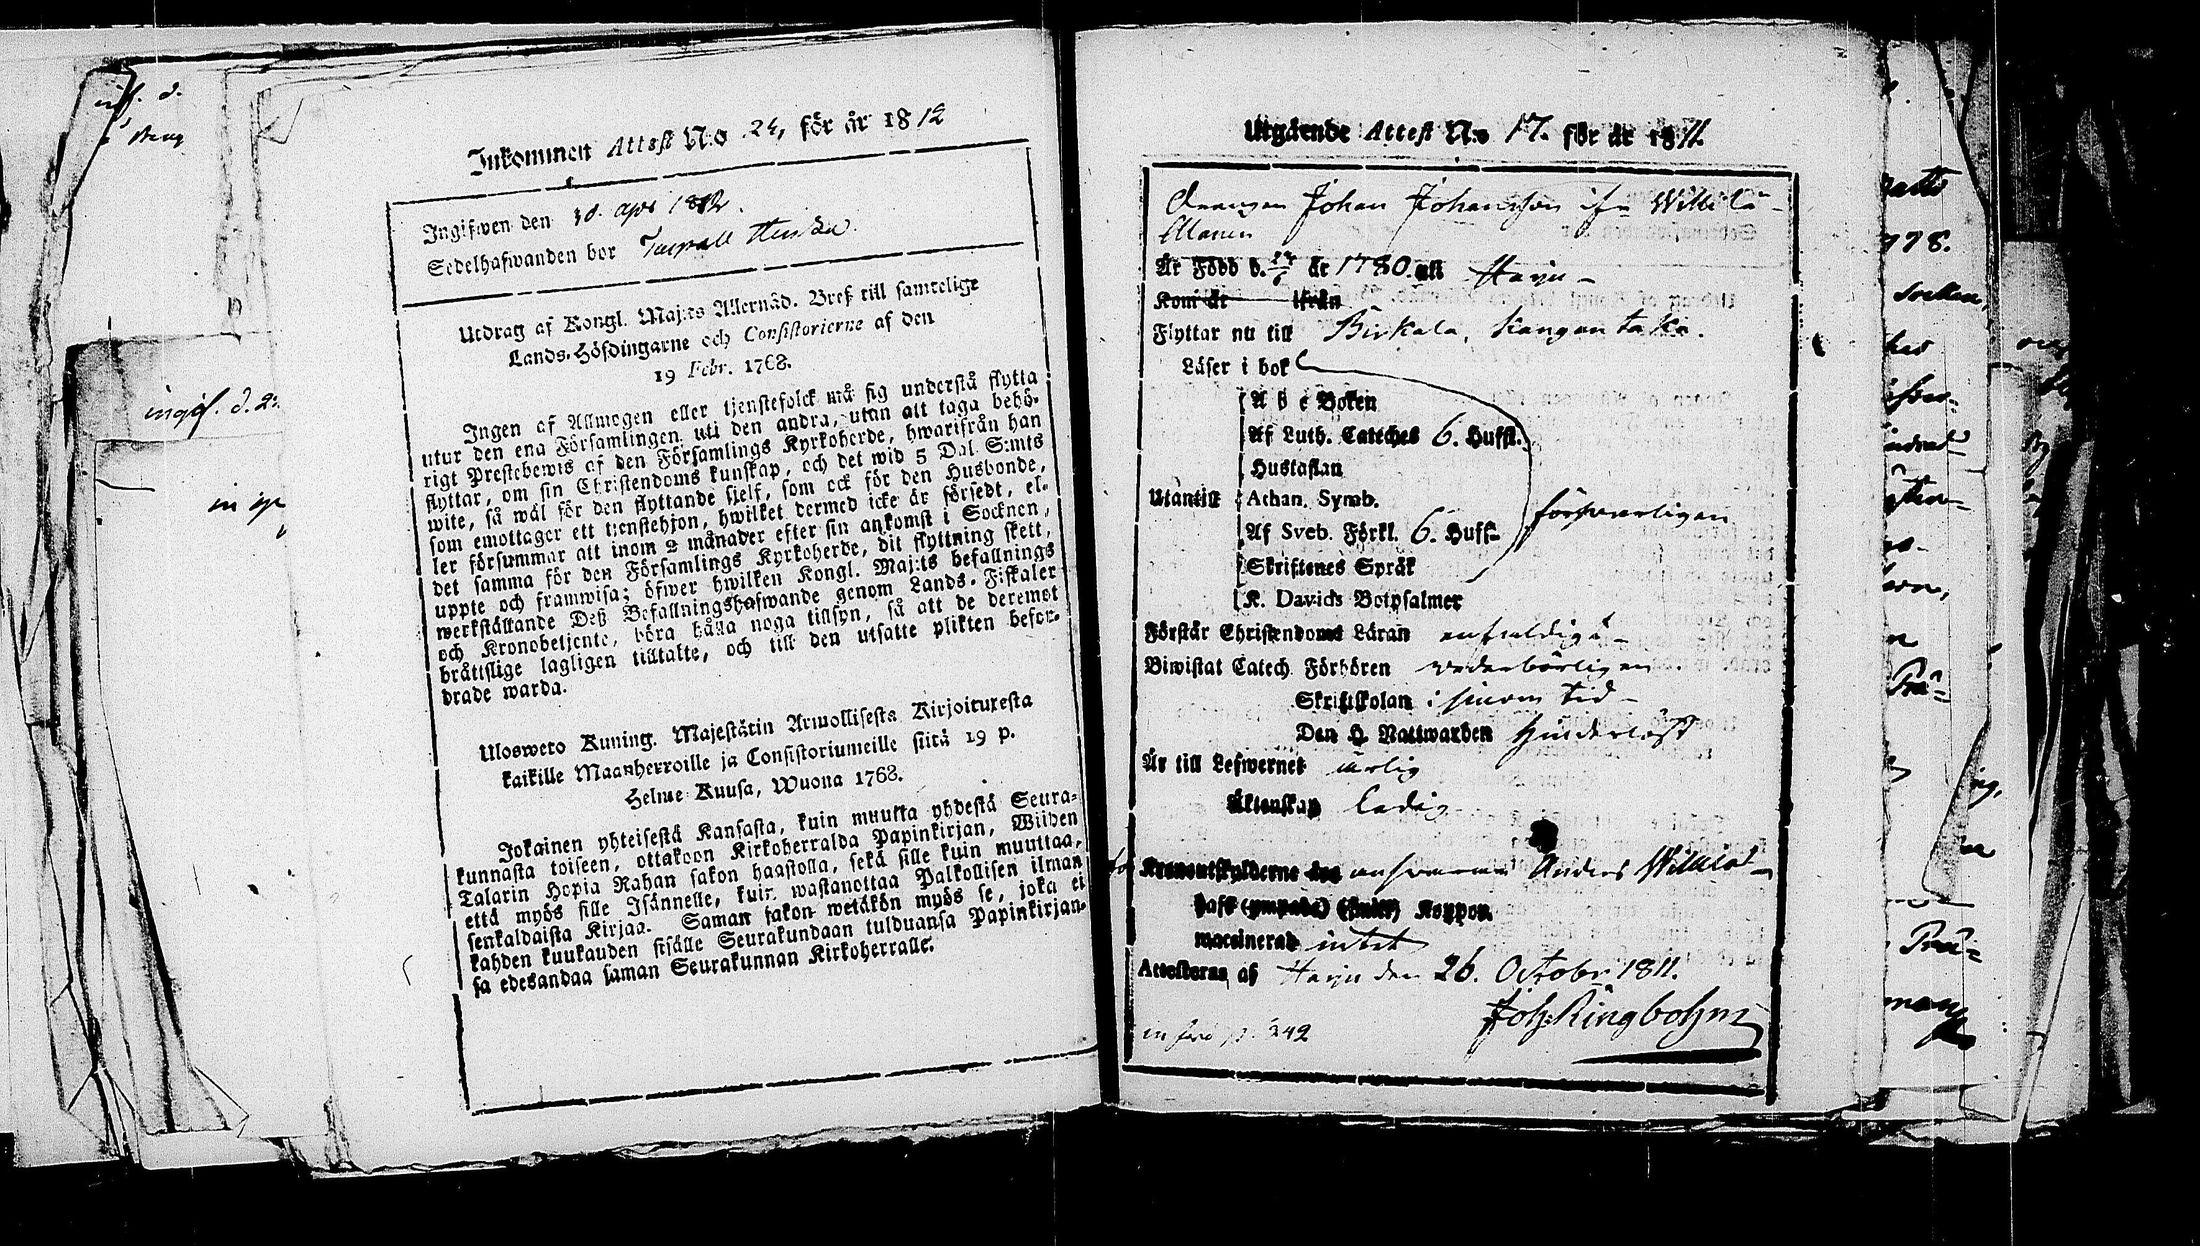 Inkommen Attest N:o 24, för år 1812
Ingifwen den 18. apr 1812.
Sedelhafwanden bor
Utdrag af Kongl. Maj:ts Allernåd. Bref till samtelige
Lands-Höfdingarne och Consistorierne af den
19 Febr. 1768.
Ingen af Allmogen eller tjenstefolck må sig understå flytta
utur den ena Församlingen uti den andra, utan att taga behö-
rigt Prestebewis af den Församlings Kyrkoherde, hwarifrån han
flyttar, om sin Christendoms kunskap, och det wid 5 Dal. S:mts
wite, så wäl för den flyttande sjelf, som ock för den Husbonde,
som emottager ett tjenstehjon, hwilket dermed icke är försedt, el-
ler försummar att inom 2 månader efter sin ankomst i Socknen,
det samma för den Församlings Kyrkoherde, dit flyttning skett,
uppte och framwisa; öfwer hwilken Kongl. Maj:ts befallnings
werkställande Deß Befallningshafwande genom Lands-Fiskaler
och Kronobetjente, böra hålla noga tillsyn, så att de deremot
bråttslige lagligen tilltalte, och till den utsatte plikten befor-
drade warda.
Ulosweto Kuning. Majestätin Armollisesta Kirjoituxesta
kaikille Maanherroille ja Consistoriumeille siitä 19 p.
Helme-Kuusa, Wuona 1768.
Jokainen yhteisestä Kansasta, kuin muutta yhdestä Seura-
kunnasta toiseen, ottakoon Kirkoherralda Papinkirjan, Wiiden
Talarin Hopia Rahan sakon haastolla, sekä sille kuin muuttaa,
että myös sille Isännelle, kuin wastanottaa Palkollisen ilman
senkaldaista Kirjaa. Saman sakon wetäkön myös se, joka ei
kahden kuukauden sisälle Seurakundaan tulduansa Papinkirjan-
sa edesandaa saman Seurakunnan Kirkoherralle.
Utgående Attest N:o 17. för år 1811.
Drängen Johan Johansson ifr Willila
Är Född d. år 1780. uti Harju
Kom år ifrån
Flyttar nu till Birkala, Kangantaka.
Läser i bok
A b c Boken
Af Luth. Cateches 6. Hufst.
Hustaflan
Utantill Athan. Symb. försvarligen
Af Sveb. Förkl. 6. Hufst.
Skriftenes Språk
K. Davids Botpsalmer
Förstår Christendoms Läran enfaldigt
Biwistat Catech. Förhören vederbörligen
Skriftskolan i sinom tid
Den H. Nattwarden hinderlöst
Är till Lefwernet ärlig
Äktenskap ledig
Kronoutskylderne ansvarar Anders Willila
Haft (ympade) Koppor.
vaccinerad intet
Attesteras af Harju den 26. October 1811.
Joh: Ringbohm